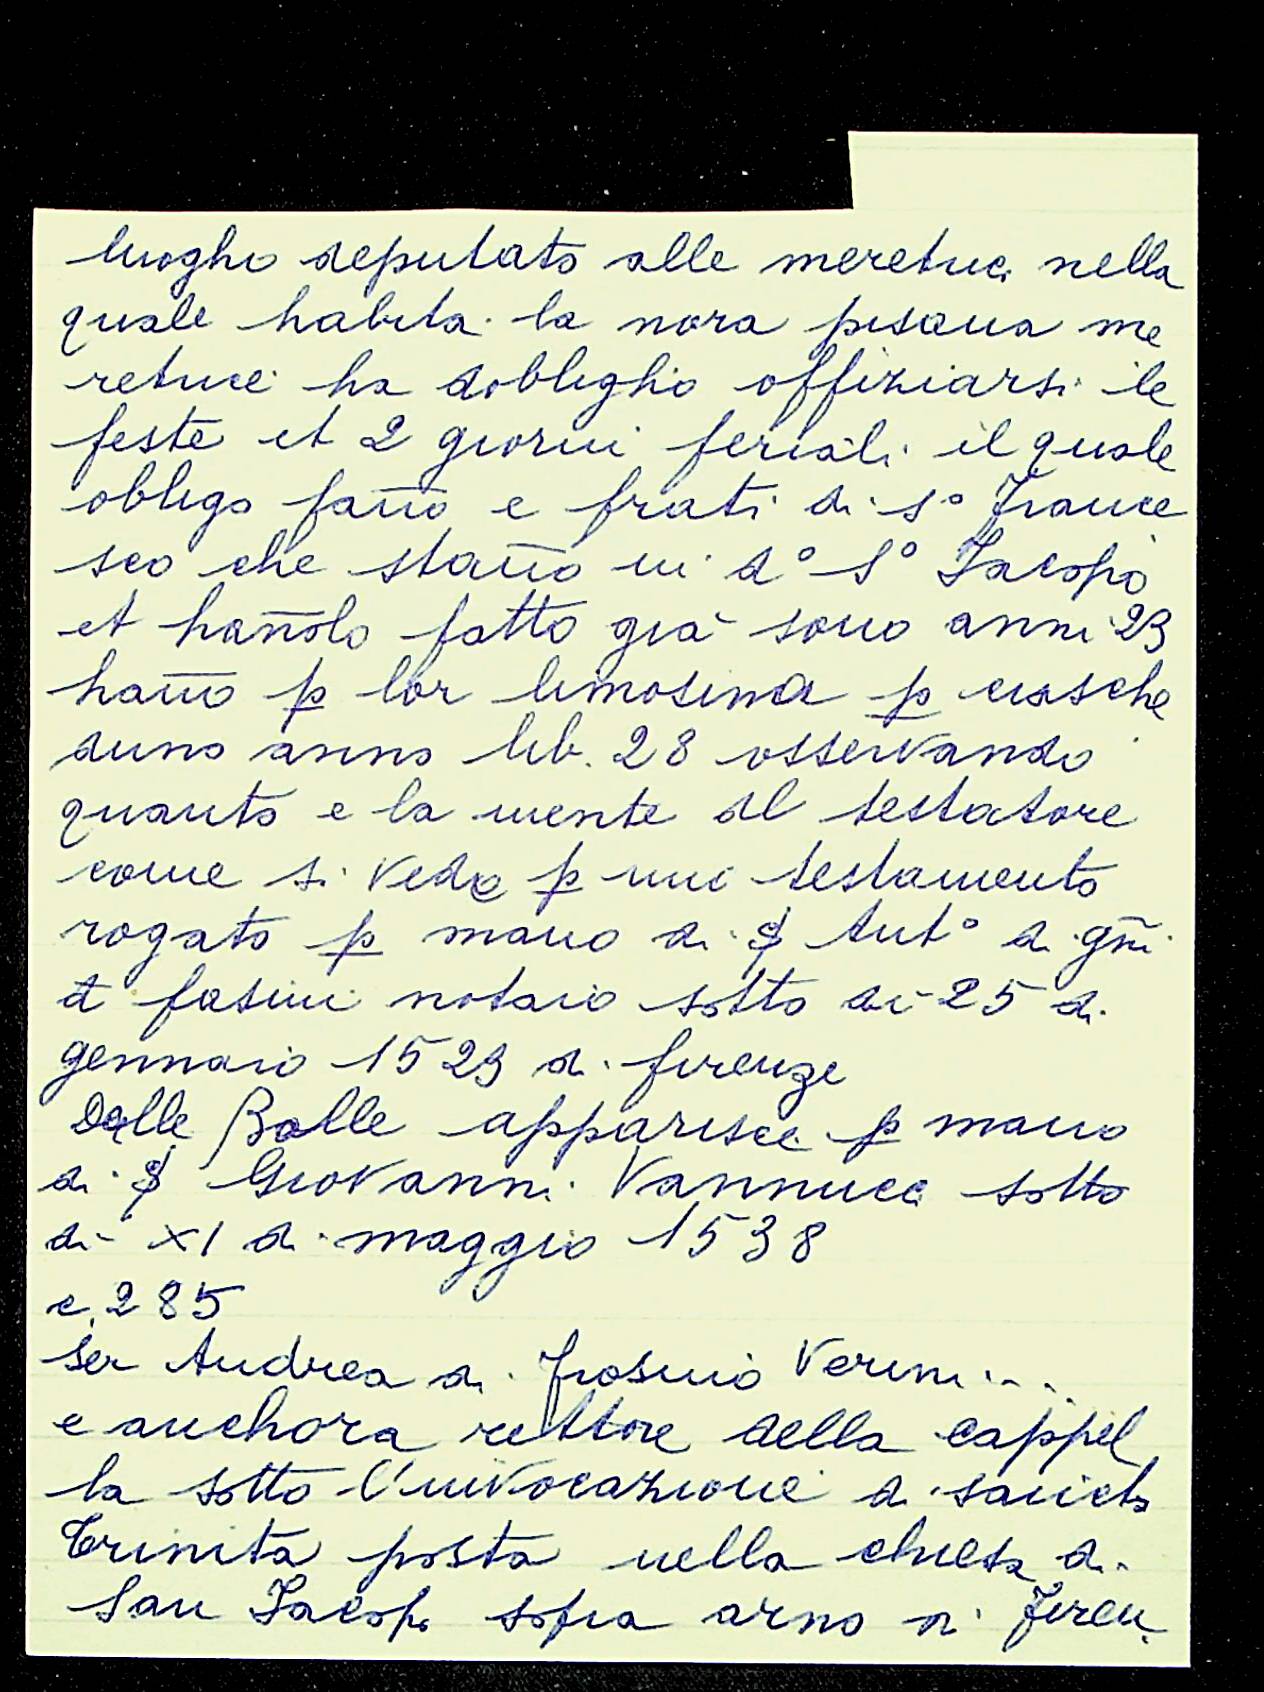 luogho deputato alle meretrici nella
quale habita la nora pisana me
retrice ha dobligho offiziarsi le
feste et 2 giorni feriali il quale
obligo fanō e frati di s° France
sco che stanō in d° S° Jacopo
et hanōlo fatto già sono anni 23
hanō p lor limosina p ciasche
duno anno lib. 28 osservando
quanto e la mente dl testatore
come si vede p uno testamento
rogato p mano di S Ant° di gñi
d fasini notaio sotto di 25 di
gennaio 1523 di firenze
Delle Bolle apparisce p mano
di S Giovanni Vannucci sotto
di XI di maggio 1538
c. 285
Ser Andrea di Frosino Verini....
e anchora rettore della cappel
la sotto l'invocazione di sancta
Trinita posta nella chiesa di
San Jacopo sopra arno in Firen